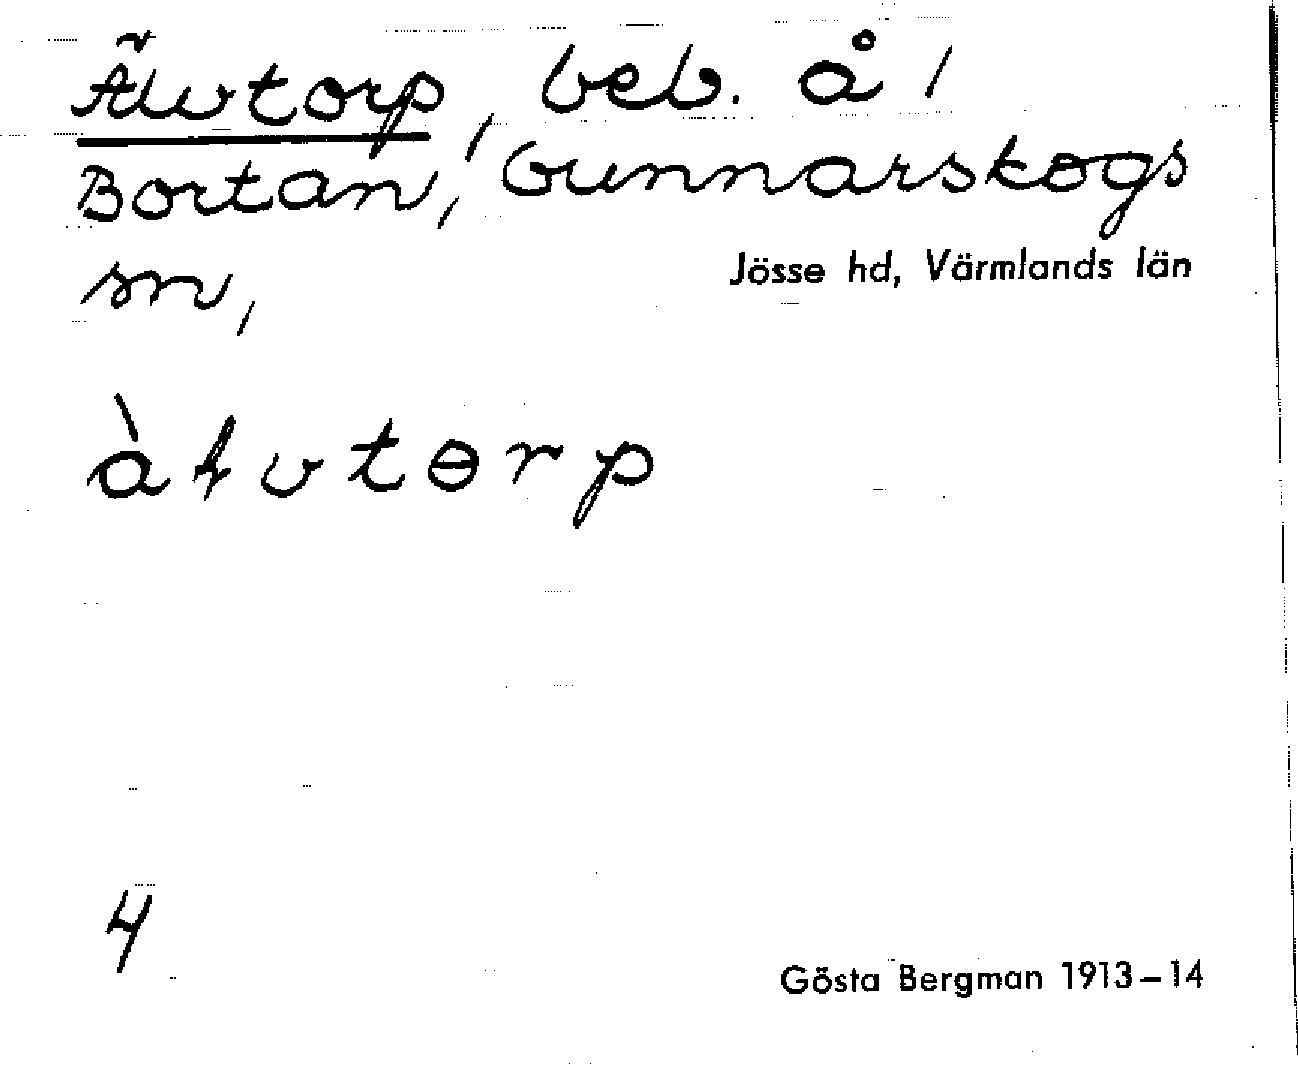 Älvtorp, beb. å /
Bortan, Gunnarskogs
sn,
Jösse hd, Värmlands län
àɫvtɵrp
4
Gösta Bergman 1913–14